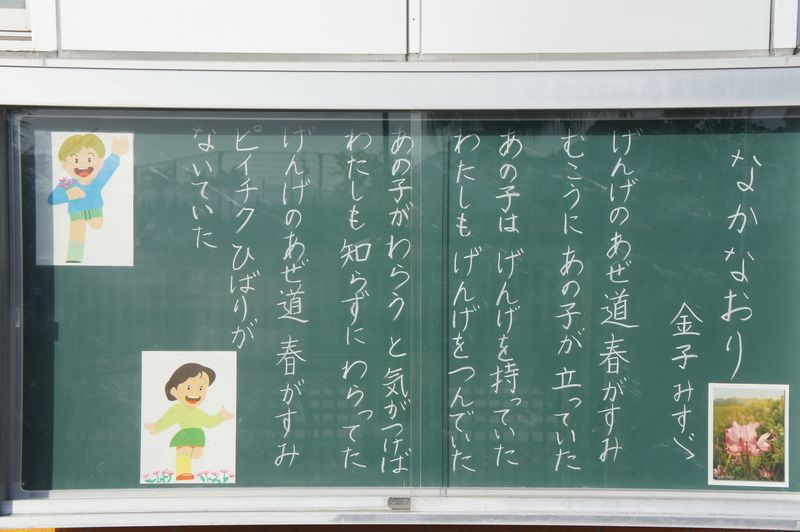 なかなおり
金子 みすゞ
げんげのあぜ道 春がすみ
むこうに あの子が 立っていた
あの子は げんげを持っていた
わたしも げんげをつんでいた
あの子が わらう と 気がつけば
わたしも 知らずに わらってた
げんげのあぜ道 春がすみ
ピイチク ひばりが
ないていた